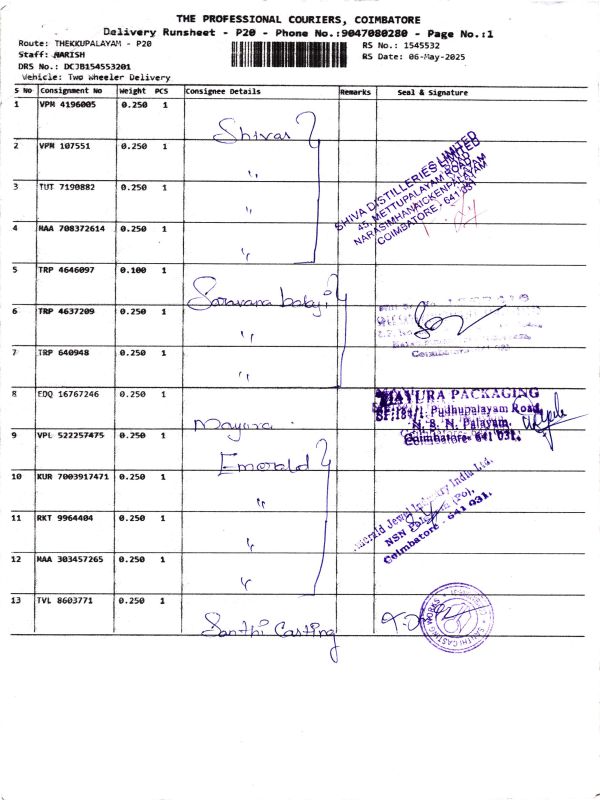 THE PROFESSIONAL COURIERS, COIMBATORE
Delivery Runsheet - P20 - Phone No.:9047080280 - Page No.:1
Route: THEKKUPALAYAM - P20
Staff: HARISH
DRS No.: DCJB154553201
Vehicle: Two Wheeler Delivery
RS No.: 1545532
RS Date: 06-May-2025
S No Consignment No Weight PCS Consignee Details Remarks Seal & Signature
1 VPM 4196005 0.250 1 Shivas
2 VPM 107551 0.250 1 "
3 TUT 7190882 0.250 1 "
4 MAA 708372614 0.250 1 "
SHIVA DISTILLERIES LIMITED
45, METTUPALAYAM ROAD,
NARASIMHANAICKENPALAYAM
COIMBATORE - 641 031
5 TRP 4646097 0.100 1 Saravana balaji
6 TRP 4637209 0.250 1 "
7 TRP 640948 0.250 1 "
Coimbatore
8 EDQ 16767246 0.250 1 Mayura
MAYURA PACKAGING
SF;184/1. Pudhupalayam Road,
N. S. N. Palayam.
Coimbatore- 641 031.
9 VPL 522257475 0.250 1 Emerald
10 KUR 7003917471 0.250 1 "
11 RKT 9964404 0.250 1 "
12 MAA 303457265 0.250 1 "
Emerald Jewel Industry India Ltd.
NSN (Po),
Coimbatore - 641 031.
13 TVL 8603771 0.250 1 Santhi Casting
SANTHI CASTING WORKS